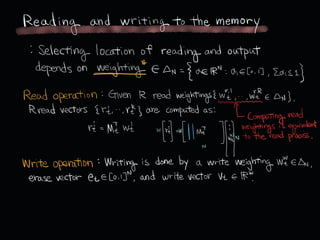 Reading and writing to the memory
: Selecting location of reading and output
depends on weighting* ∈ Δ_N = {α∈ℝ^N : α_i∈[0,1], Σα_i≤1}
Read operation : Given R read weightings {w_t^{r,1}, ..., w_t^{r,R} ∈ Δ_N},
R read vectors {r_t^1, ..., r_t^R} are computed as:
r_t^i = M_t^⊤ w_t
Computing read
weightings is equivalent
to the read process.
Write operation : Writing is done by a write weighting w_t^w ∈ Δ_N,
erase vector e_t ∈ [0,1]^W, and write vector v_t ∈ ℝ^W